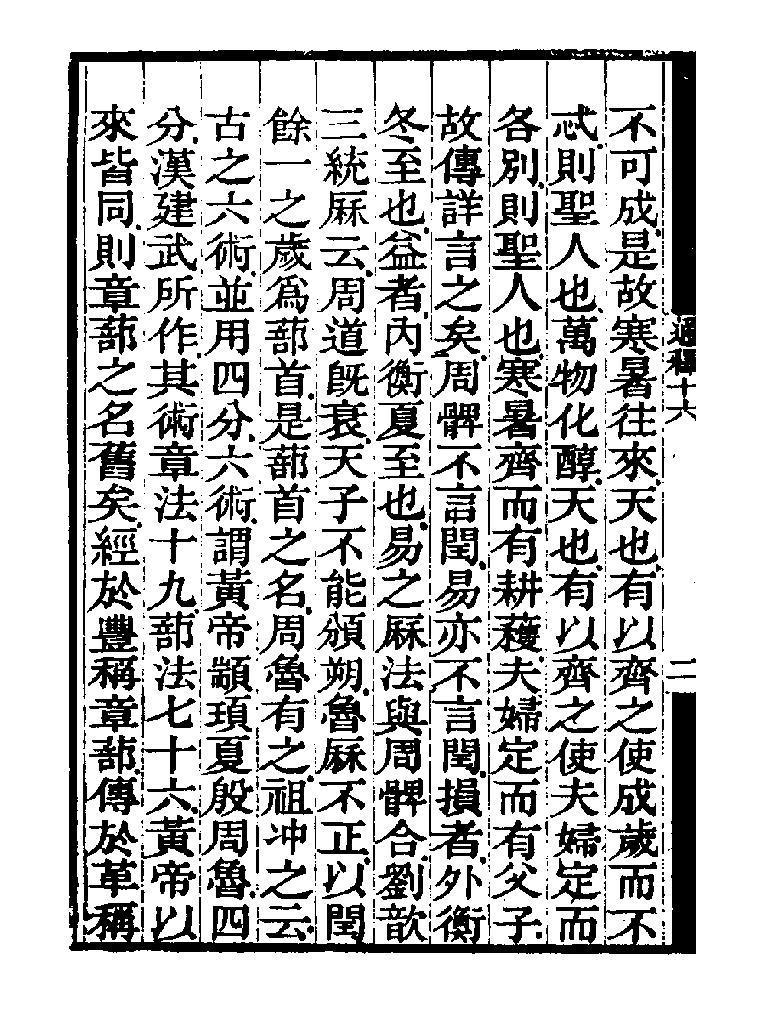 不可成是故寒暑往來天也有以齊之使成歲而不
忒則聖人也萬物化醇天也有以齊之使夫婦定而
各別則聖人也寒暑齊而有耕穫夫婦定而有父子
故傳詳言之矣周髀不言閏易亦不言閏損者外衡
冬至也益者內衡夏至也易之厤法與周髀合劉歆
三統厤云周道旣衰天子不能頒朔魯厤不正以閏
餘一之歲爲蔀首是蔀首之名周魯有之祖冲之云
古之六術並用四分六術謂黃帝顓頊夏殷周魯四
分漢建武所作其術章法十九蔀法七十六黃帝以
來皆同則章蔀之名舊矣經於豐稱章蔀傳於革稱
通釋十六
二